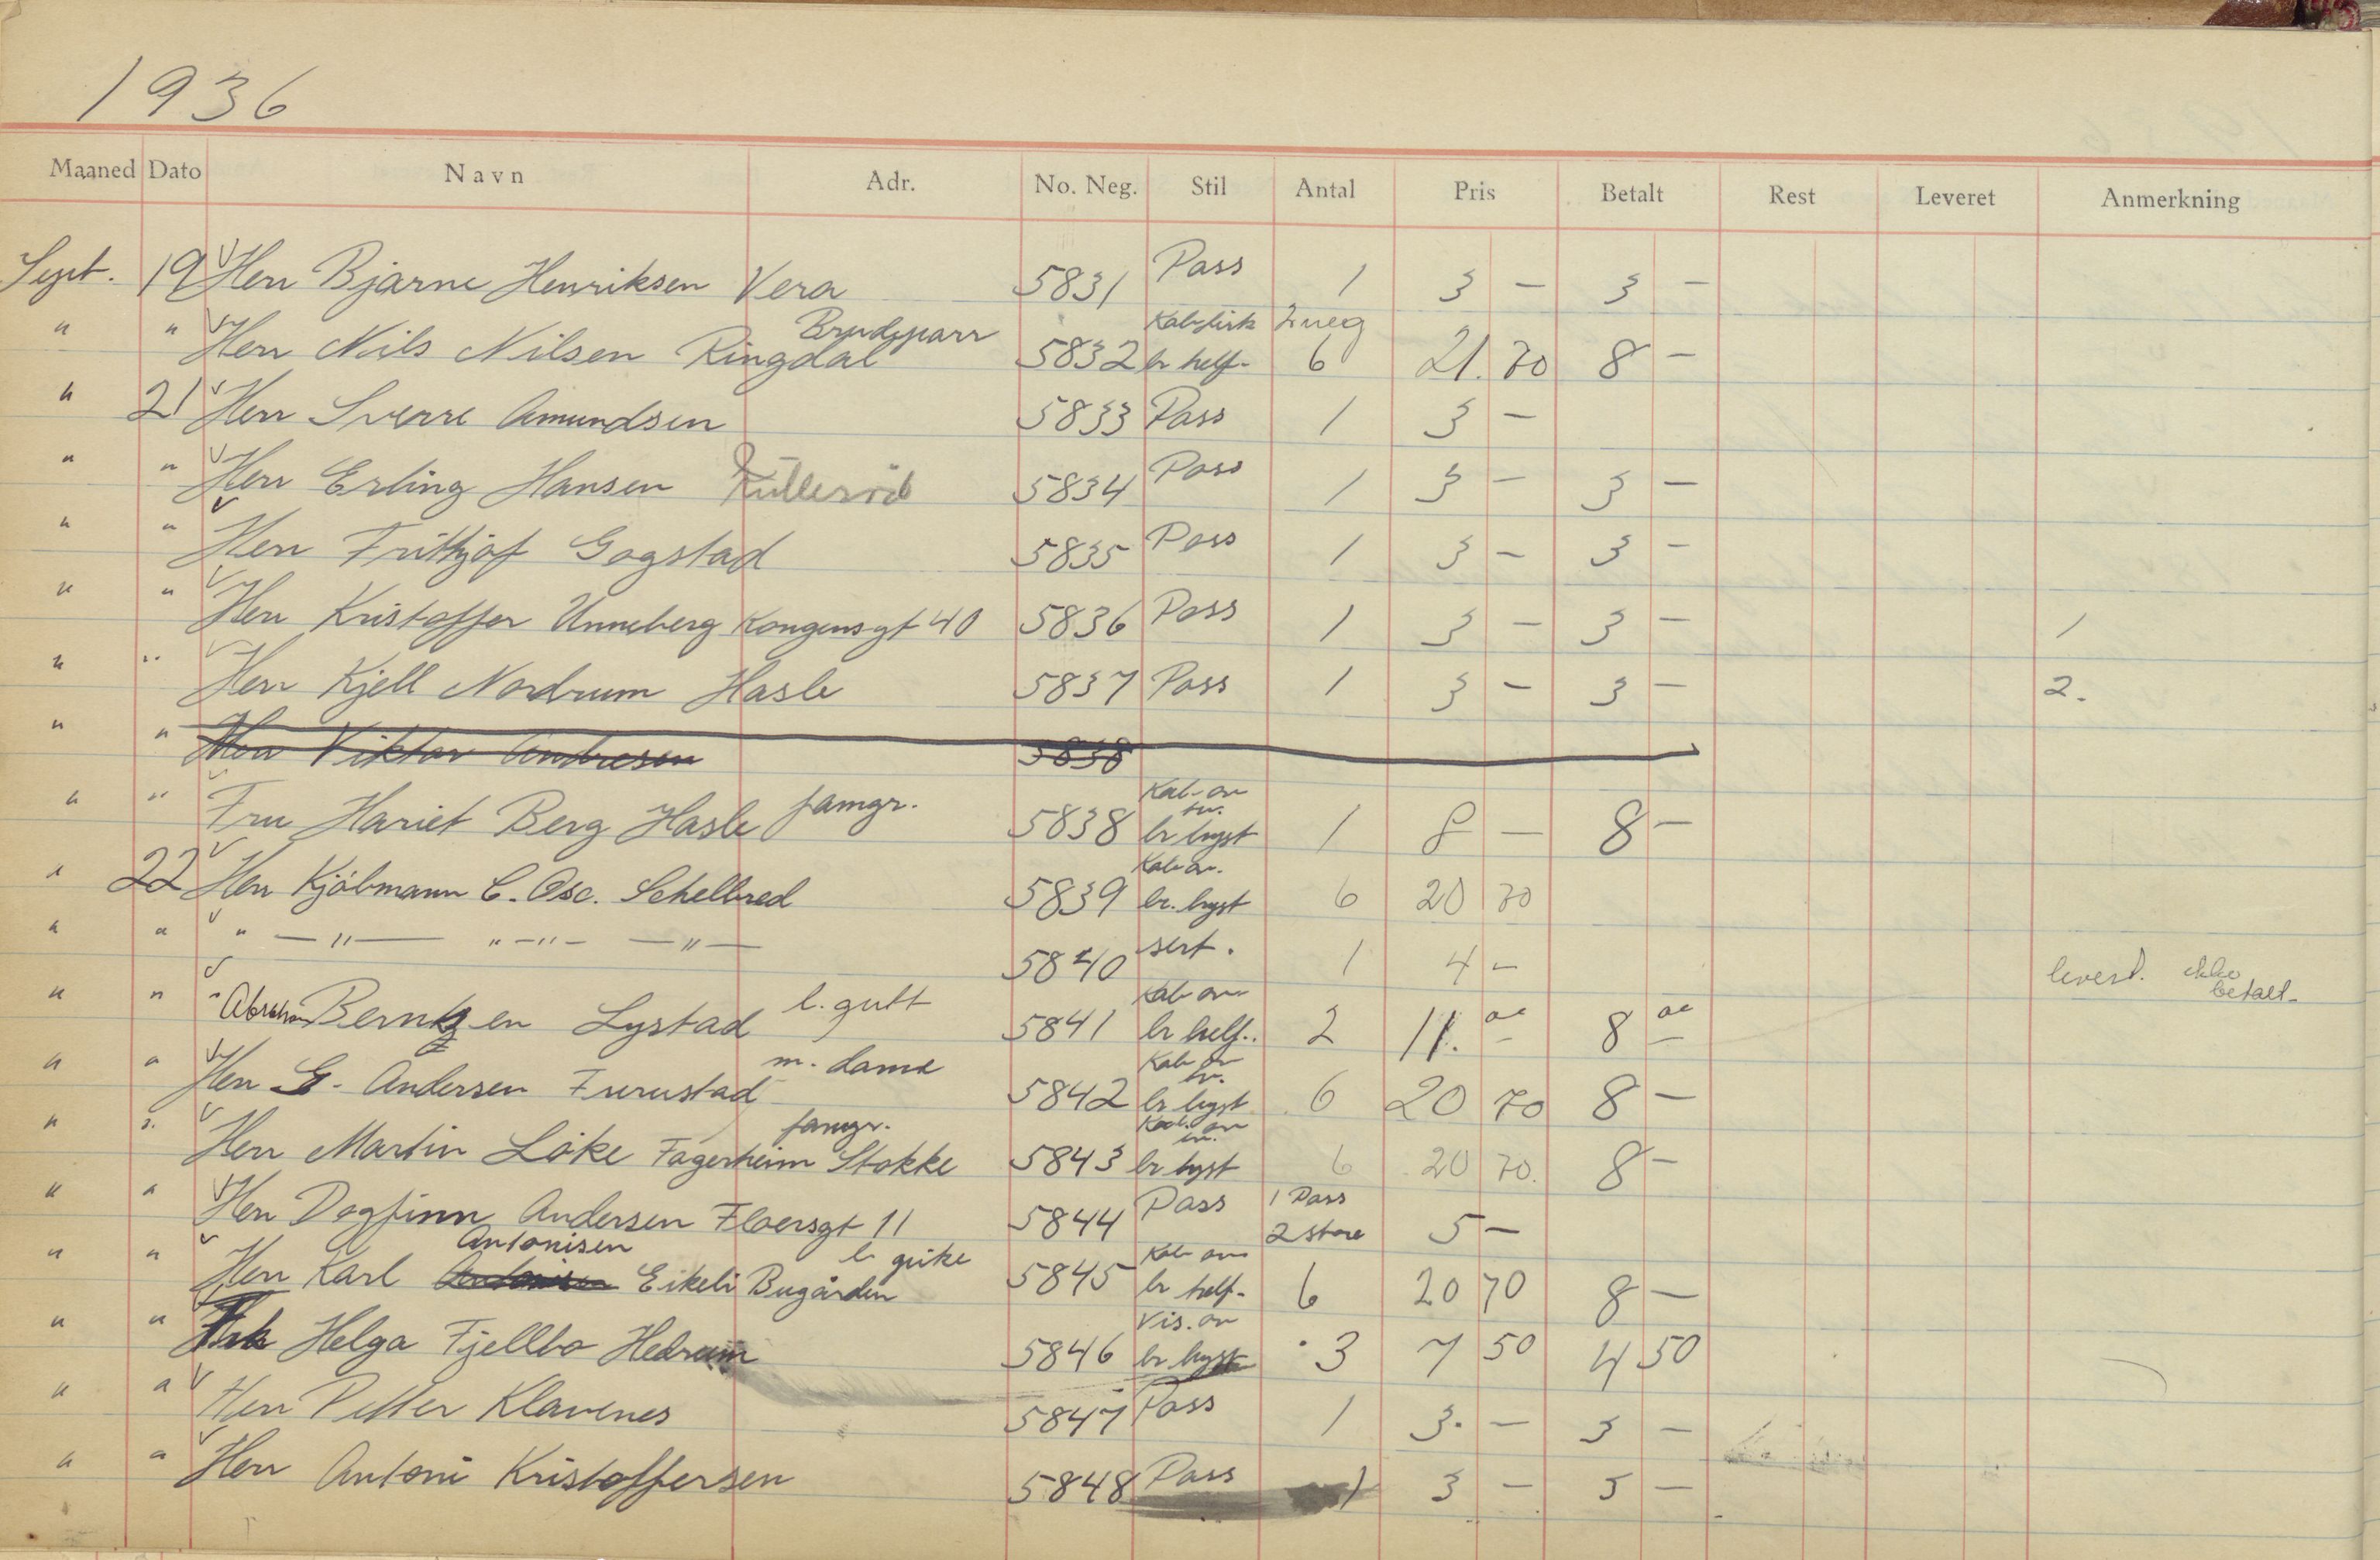 1936
Maaned Dato Navn Adr. No. Neg. Stil Antal Pris Betalt Rest Leveret Anmerkning
Sept. 19 Herr Bjarne Henriksen Vera 5831 Pass 1 3 — 3 —
Brudeparr 2 neg
" " Herr Nils Nilsen Ringdal 5832 br helf- 6 21. 70 8 —
" 21 Herr Sverre Amundsen 5833 Pass 1 3 —
" " Herr Erling Hansen 5834 Pass 1 3 — 3 —
" " Herr Frithjof Gogstad 5835 Pass 1 3 — 3 —
" " Herr Kristoffer Unneberg Kongensgt 40 5836 Pass 1 3 — 3 — 1
" " Herr Kjell Nordrum Hasle 5837 Pass 1 3 — 3 — 2.
" " Herr Viktor Andresen 5838
famgr. Kab-ov
" " Fru Hariet Berg Hasle 5838 br bryst 1 8 — 8 —
Kab ov.
" 22 Herr Kjöbmann C. Osc. Schelbred 5839 br. bryst 6 20 70
" " " —"— "—"— —"— 5840 sert. 1 4 — leverd. ikke betalt-
l. gutt Kab ov
" " " Abraham Berntzen Lystad 5841 br helf.. 2 11. — 8 —
m. dame Kab ov
" " Herr G. Andersen Furustad 5842 br bryst 6 20 70 8 —
famgr. Kab. ov
" " Herr Martin Löke Fagerheim Stokke 5843 br bryst 6 20 70. 8 —
" " Herr Dagfinn Andersen Floersgt 11 5844 Pass 1 Pass
2 store 5 —
Antonisen Kab ov
" " Herr Karl Antonisen Eikeli Bugården 5845 br helf- 6 20 70 8 —
Vis. ov
" " Frk Helga Fjellbo Hedrum 5846 br bryst 3 7 50 4 50
" " Herr Petter Klavenes 5847 Pass 1 3. — 3 —
" " Herr Antoni Kristoffersen 5848 Pass 1 3 — 3 —